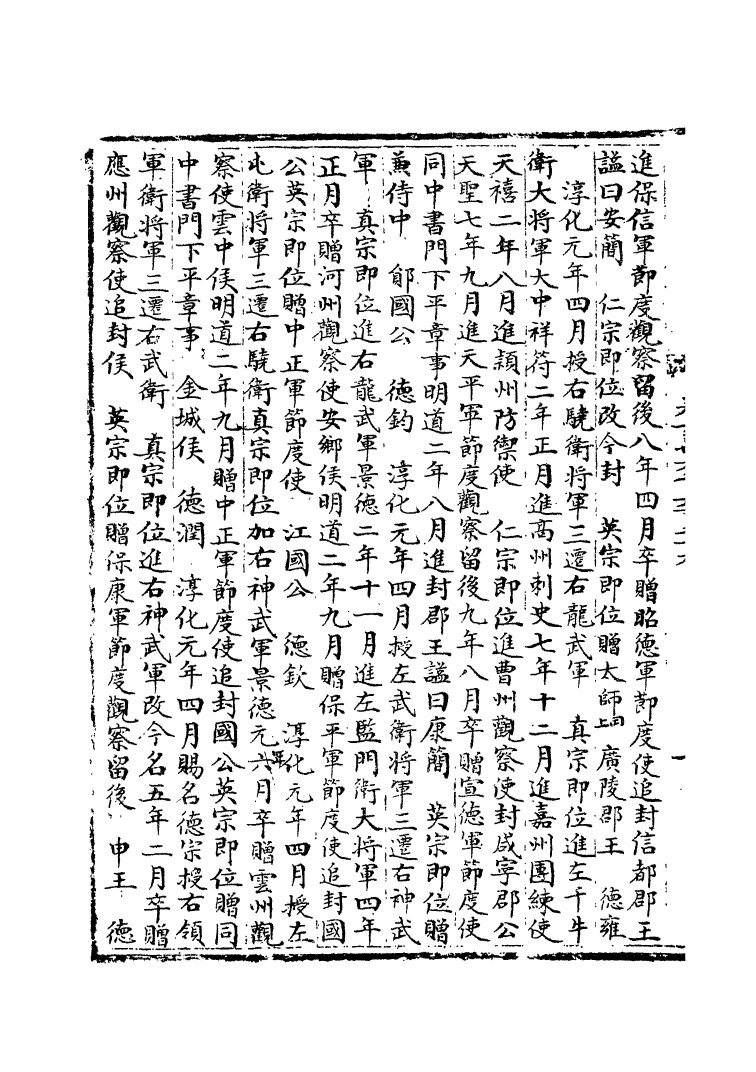 進保信軍節度觀察留後八年四月卒贈昭德軍節度使追封信都郡王
謚曰安簡　仁宗即位改今封　英宗即位贈太師尚　廣陵郡王　德雍
淳化元年四月授右驍衛將軍三遷右龍武軍　真宗即位進左千牛
衛大將軍大中祥符二年正月進高州刺史七年十二月進嘉州團練使
天禧二年八月進潁州防禦使　仁宗即位進曹州觀察使封咸寧郡公
天聖七年九月進天平軍節度觀察留後九年八月卒贈宣德軍節度使
同中書門下平章事明道二年八月進封郡王謚曰康簡　英宗即位贈
兼侍中　鄖國公　德鈞　淳化元年四月授左武衛將軍三遷右神武
軍　真宗即位進右龍武軍景德二年十一月進左監門衛大將軍四年
正月卒贈河州觀察使安鄉侯明道二年九月贈保平軍節度使追封國
公英宗即位贈中正軍節度使　江國公　德欽　淳化元年四月授左
屯衛將軍三遷右驍衛真宗即位加右神武軍景德元年六月卒贈雲州觀
察使雲中侯明道二年九月贈中正軍節度使追封國公英宗即位贈同
中書門下平章事　金城侯　德潤　淳化元年四月賜名德宗授右領
軍衛將軍三遷右武衛　真宗即位進右神武軍改今名五年二月卒贈
應州觀察使追封侯　英宗即位贈保康軍節度觀察留後　申王　德